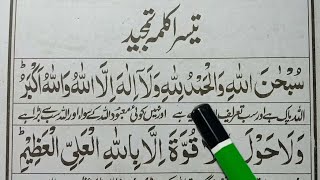 تیسرا کلمہ تمجید
سُبْحٰنَ اللهِ وَالْحَمْدُ لِلّٰهِ وَلَآ اِلٰهَ اِلَّا اللهُ وَاللهُ اَكْبَرُ ط
اللہ پاک ہے اور سب تعریف ہے اور نہیں کوئی معبود اللہ کے سوا، اور اللہ سب سے بڑا ہے
وَلَا حَوْلَ قُوَّةَ اِلَّا بِاللهِ الْعَلِيِّ الْعَظِيْمِ ط